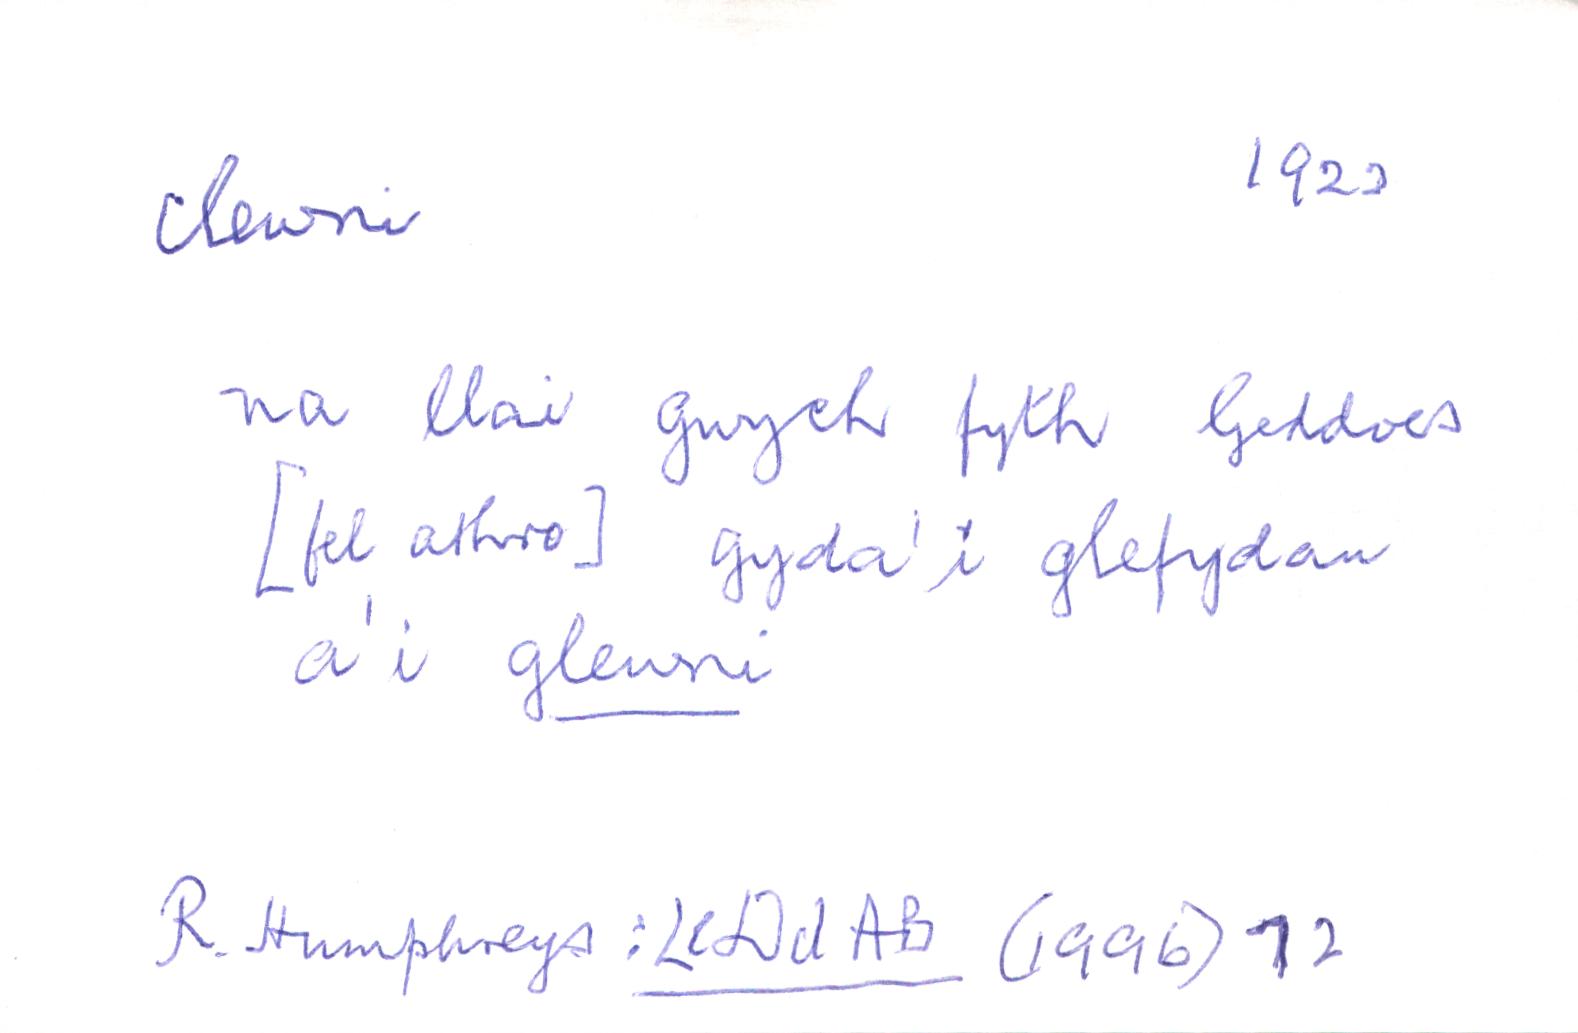 clewsni 1923
na llai gwych fyth Geddoes
[fel athro] gyda'i glefydau
a'i glewsni
R. Humphreys: (1996) 72